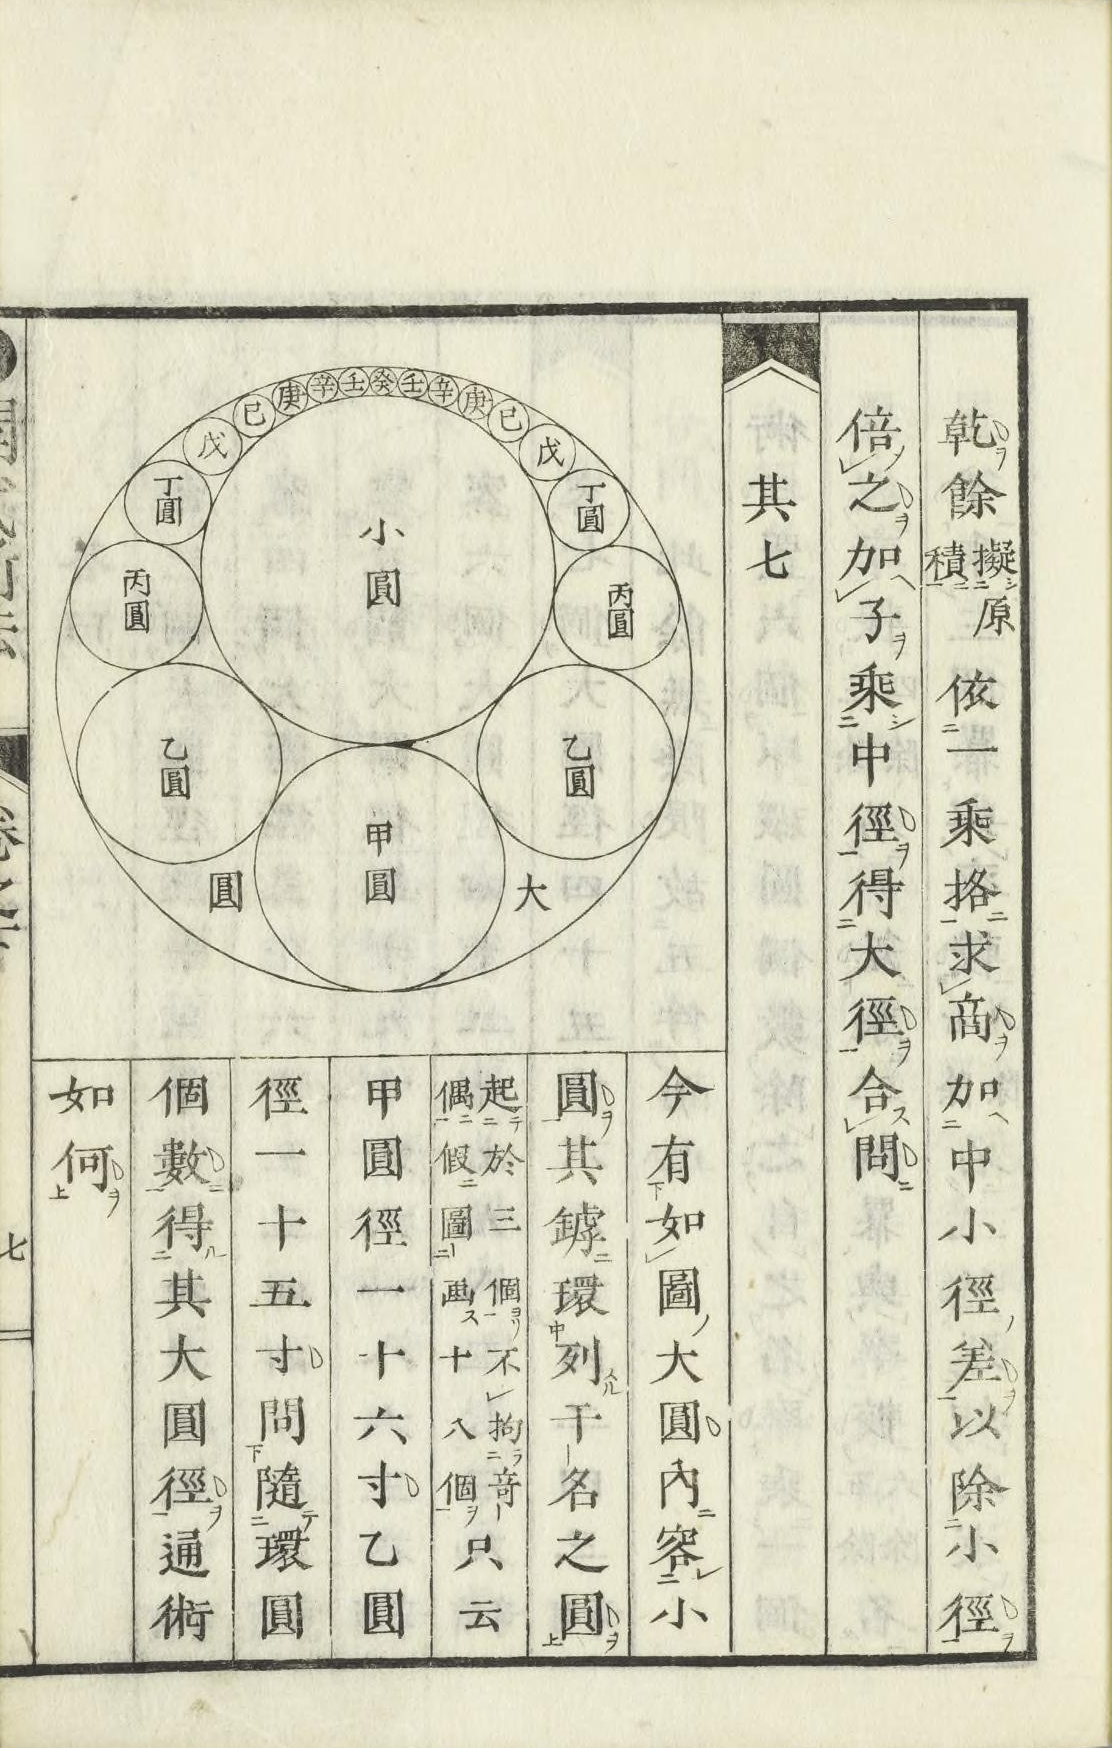 乾餘擬原積依一乘挌求商加中小徑差以除小徑
倍之加子乘中徑得大徑合問
其七
癸
壬 壬
辛 辛
庚 庚
己 己
戊 戊
丁圓 丁圓
丙圓 丙圓
乙圓 乙圓
甲圓
小圓
大圓
今有如圖大圓內容小
圓其罅環列干名之圓
起於三個不拘奇偶假圖画十八個只云
甲圓徑一十六寸乙圓
徑一十五寸問隨環圓
個數得其大圓徑通術
如何
七